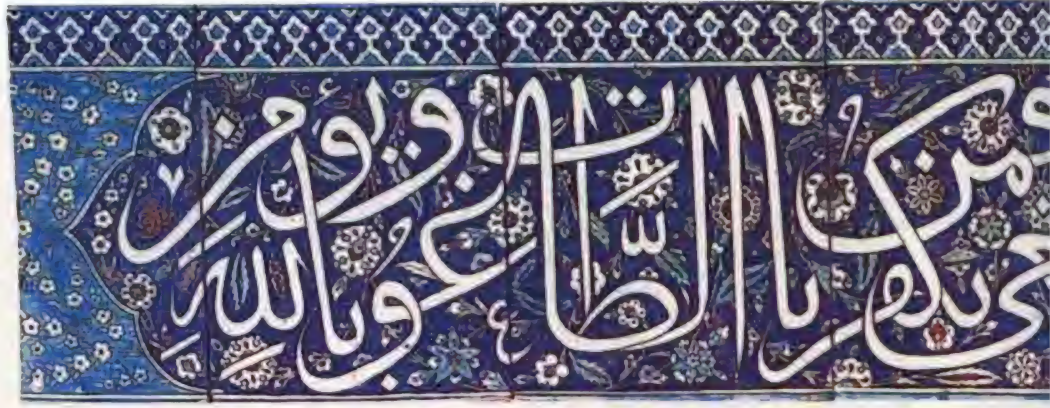 فمن يكفر بالطاغوت ويؤمن بالله